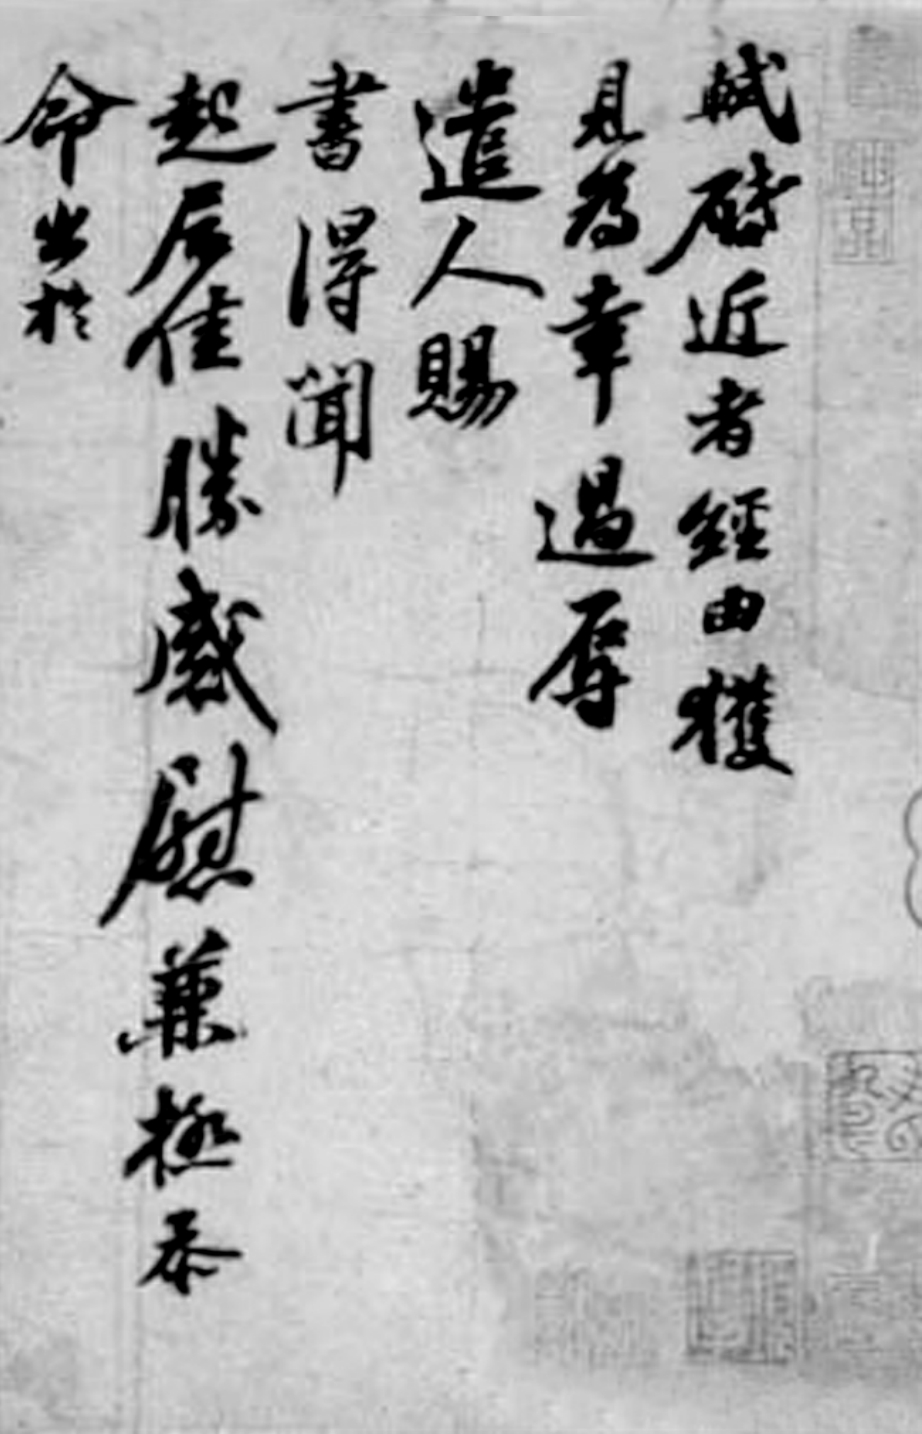 軾啟近者經由獲
見為幸過辱
遣人賜
書得聞
起居佳勝感慰兼極忝
命出於